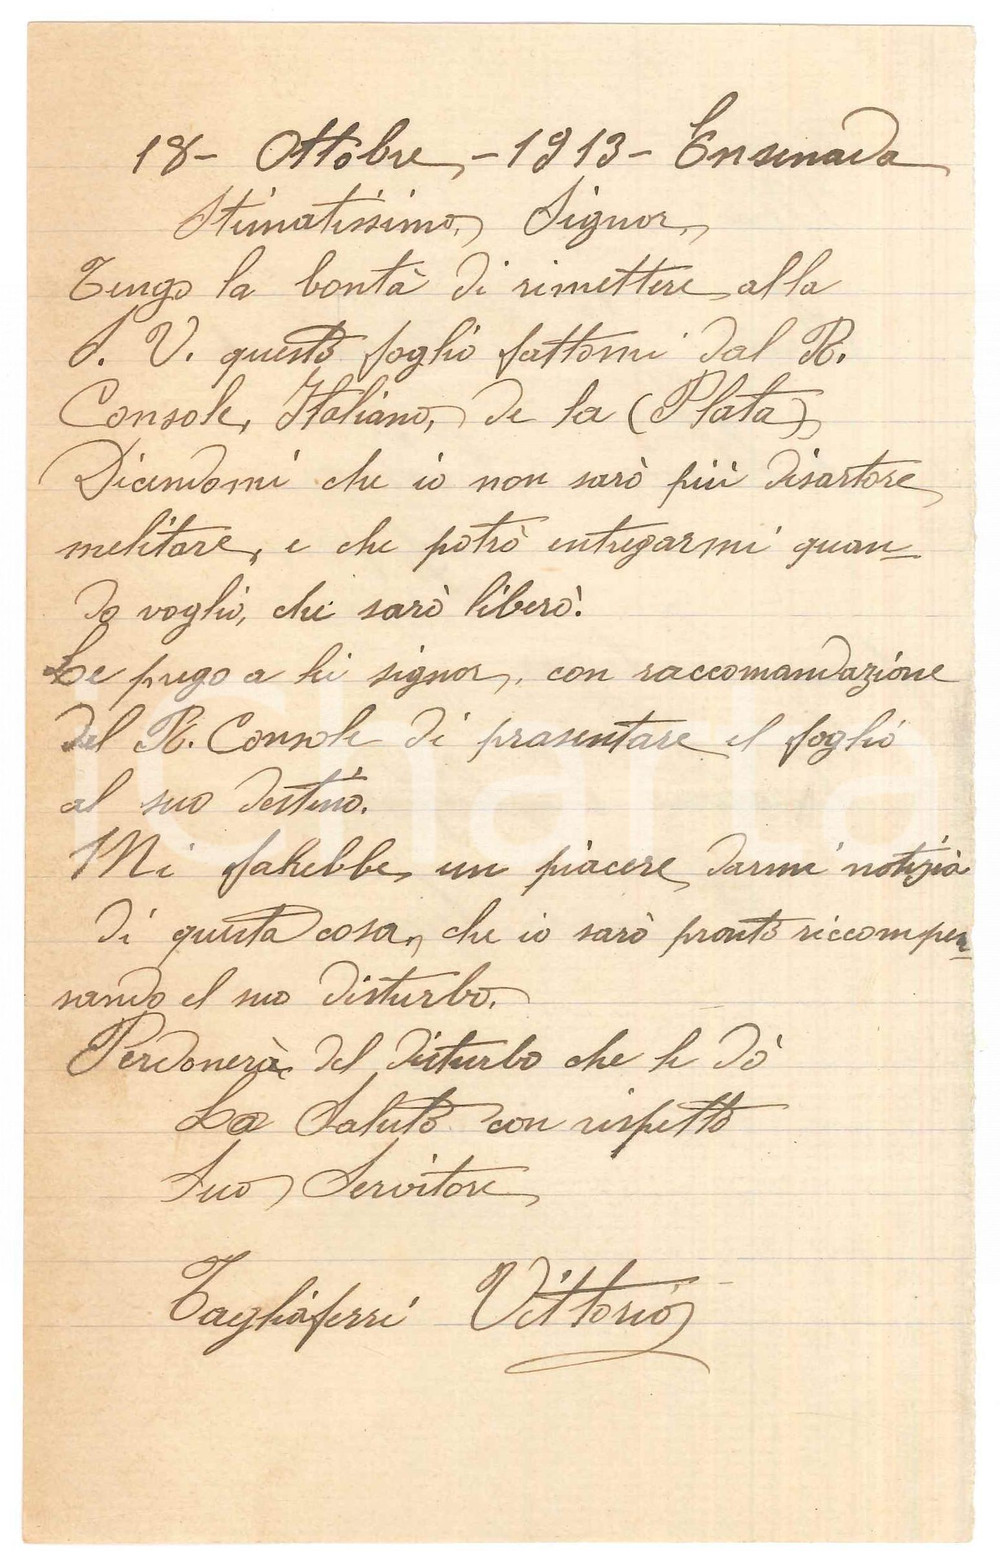 18 - Ottobre - 1913 - Ensenada
Stimatissimo, Signor,
Tengo la bontà di rimettere alla
S. V. questo foglio fattomi dal R.
Console, Italiano, de la (Plata),
Dicendomi che io non sarò più disartore
melitare, e che potrò entregarmi quan=
do voglio, che sarò liberò.
Le prego a lei signor, con raccomandazione
del R. Console di prasentare el foglio
al suo destino.
Mi farebbe un piacere darmi notizia
di questa cosa, che io sarò pronto riccompen=
sando el suo disturbo.
Perdonerà del disturbo che le dò
La Saluto con rispetto
Suo Servitore
Tagliaferri Vittorio